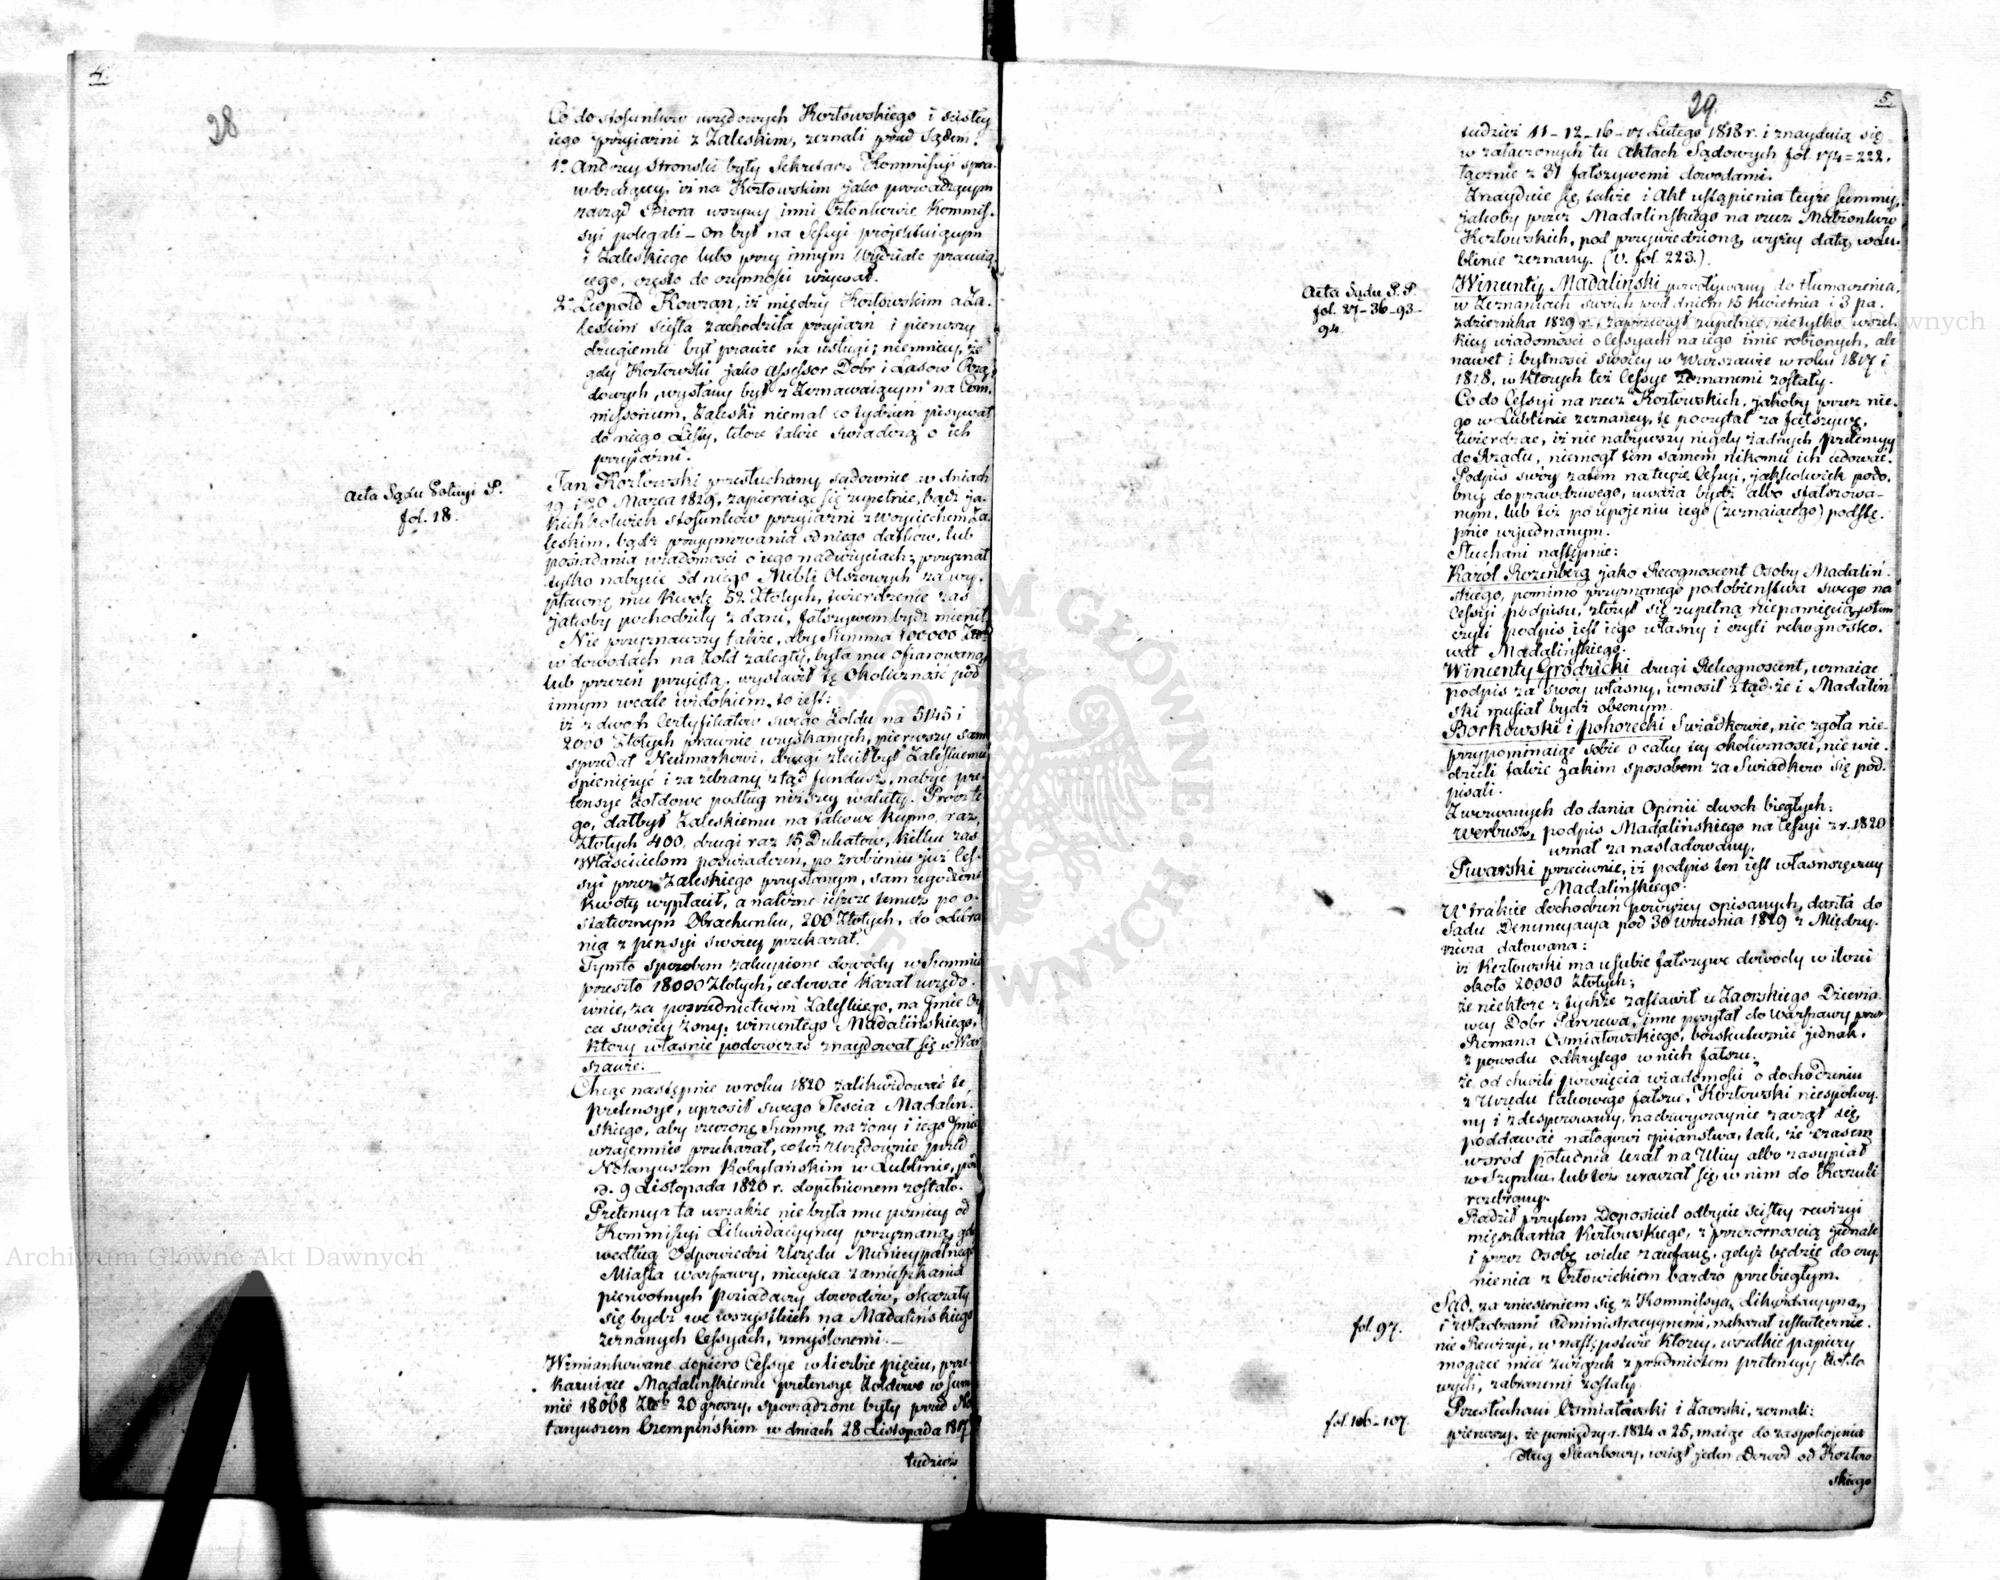 4.
28
Co do stosunków urzędowych Kozłowskiego i ścisłey
iego przyiaźni z Zaleskim, zeznali przed Sądem:
1º Andrzey Stronski były Sekretarz Kommissyi spra-
wdzaiącey, iż na Kozłowskim jako prowadzącym
zarząd Biora wszyscy inni Członkowie Kommis-
syi polegali – On był na Sessyi projektuiącym
i Zaleskiego lubo przy innym Wydziale pracuią-
cego, często do czynności używał.
2º Leopold Kowzan, iż między Kozłowskim a Za-
leskim ścisła zachodziła przyiaźń i pierwszy
drugiemu był prawie na usługi; niemniey, że
gdy Kozłowski jako Assessor Dobr i Lasow Rzą-
dowych, wysłany był z Zeznawaiącym na Com-
missorium, Zaleski niemal co tydzień pisywał
do niego Listy, które także świadczą o ich
przyiaźni.
Acta Sądu Policyi P.
fol. 18.
Jan Kozłowski przesłuchany sądownie w dniach
19 i 20 Marca 1829, zapieraiąc się zupełnie, bądź ja-
kichkolwiek stosunków przyiaźni z Woyciechem Za-
leskim, bądź przyymowania od niego datków, lub
posiadania wiadomości o iego nadużyciach; przyznał
tylko nabycie od niego Mebli Olszowych za wy-
płaconą mu kwotę 52 Złotych, twierdzenie zaś
jakoby pochodziły z daru, fałszywem bydź mienił.
Nie przyznawszy także, aby Summa 100000 Złotych
w dowodach na żołd zaległy, była mu ofiarowaną
lub przezeń przyiętą, wystawił tę okoliczność pod
innym wcale widokiem, to iest:
iż z dwoch Certyfikatow swego Żołdu na 5145 i
2000 Złotych prawnie uzyskanych, pierwszy sam
sprzedał Neumarkowi, drugi zlecił był Zaleskiemu
spieniężyć i za zebrany ztąd fundusz, nabyć pre-
tensye żołdowe podług niższey waluty. Procz te-
go, dał był Zaleskiemu na takowe kupno, raz,
Złotych 400, drugi raz 15 Dukatów, kilku zaś
Właścicielom poświadczeń, po zrobieniu już Ces-
syi przez Zaleskiego przysłanym, sam ugodzone
kwoty wypłacił, a należne ieszcze temuż po o-
statecznym Obrachunku, 200 Złotych, do odebra-
nia z pensyi swoiey przekazał.
Tymto sposobem zakupione dowody w Summie
przeszło 18000 Złotych, cedować kazał urzędo-
wnie, za pośrednictwem Zaleskiego, na Imie Oy-
ca swoiey żony, Wincentego Madalińskiego,
który właśnie podowczas znaydował się w War-
szawie.
Chcąc następnie w roku 1820 zalikwidować te
pretensye, uprosił swego Teścia Madaliń-
skiego, aby rzeczoną Summę na żony i iego Imie
wzajemnie przekazał, co też Urzędownie przed
Notaryuszem Kobylańskim w Lublinie, pod
d. 9 Listopada 1820 r. dopełnionem zostało.
Pretensya ta wszakże nie była mu pozniey od
Kommissyi Likwidacyiney przyznaną, gdy
według Odpowiedzi Urzędu Municypalnego
Miasta Warszawy, mieysca zamieszkania
pierwotnych Posiadaczy dowodów, okazały
się bydź we wszystkich na Madalińskiego
zeznanych Cessyach, zmyślonemi. –
Wzmiankowane dopiero Cessye w liczbie pięciu, prze-
kazuiące Madalińskiemu pretensye żołdowe w Sum-
mie 18068 Złotych 20 groszy, sporządzone były przed No-
taryuszem Czempińskim w dniach 28 Listopada 1817
tudzież
5.
29.
tudzież 11 – 12 – 16 – 17 Lutego 1818 r. i znayduią się
w załączonych tu Aktach Sądowych fol. 174 = 222.
łącznie z 31 fałszywemi dowodami.
Znayduie się także i Akt ustąpienia teyże Summy,
jakoby przez Madalińskiego na rzecz Małżonków
Kozłowskich, pod przywiedzioną wyżey datą, w Lu-
blinie zeznany. (V. fol. 223.).
Acta Sądu P. P.
fol. 27 – 36 – 93 –
94.
Wincenty Madaliński powoływany do tłumaczenia,
w Zeznaniach swoich pod dniem 15 Kwietnia i 3 Pa-
zdziernika 1829 r. zaprzeczył zupełnie, nietylko wszel-
kiey wiadomości o Cessyach na iego imie robionych, ale
nawet i bytności swoiey w Warszawie w roku 1817 i
1818, w których też Cessye zeznanemi zostały.
Co do Cessyi na rzecz Kozłowskich, jakoby przez nie-
go w Lublinie zeznaney, tę poczytał za fałszywą,
twierdząc, iż nie nabywszy nigdy żadnych pretensyy
do Rządu, niemogł tém samem nikomu ich cedować.
Podpis swoy zatem na teyże Cessyi, jakkolwiek podo-
bny do prawdziwego, uważa bydź albo sfałszowa-
nym, lub też po upojeniu iego (zeznaiącego) podstę-
pnie wyjednanym.
Słuchani następnie:
Karol Rozenberg jako Recognoscent Osoby Madaliń-
skiego, pomimo przyznanego podobieństwa swego na
Cessyi podpisu, złożył się zupełną niepamięcią, o tém
czyli podpis jest iego własny i czyli rekognosko-
wał Madalińskiego.
Wincenty Grodzicki drugi Rekognoscent, uznaiąc
podpis za swoy własny, wnosił ztąd, że i Madaliń-
ski musiał bydź obecnym.
Borkowski i Pohorecki Świadkowie, nic zgoła nie-
przypominaiąc sobie o całey tey okoliczności, nie wie-
dzieli także jakim sposobem za Świadków się pod-
pisali.
Z wezwanych do dania Opinii dwoch biegłych:
Werbusz, podpis Madalińskiego na Cessyi z r. 1820
uznał za nasladowany.
Piwarski przeciwnie, iż podpis ten iest własnoręczny
Madalińskiego.
W trakcie dochodzeń powyżey opisanych, doszła do
Sądu Denuncyacya pod 30 Września 1829 z Między-
rzecza datowana:
iż Kozłowski ma u siebie fałszywe dowody w ilości
około 20000 Złotych;
że niektóre z tychże zastawił u Zaorskiego Dzierża-
wcy Dobr Parczewa, inne posyłał do Warszawy przez
Romana Osmiałowskiego, bezskutecznie jednak,
z powodu odkrytego w nich fałszu.
że od chwili powzięcia wiadomości o dochodzeniu
z Urzędu takowego fałszu, Kozłowski niespokoy-
ny i zdesperowany, nadzwyczaynie zaczął się
poddawać nałogowi pijaństwa, tak, że czasem
wsród południa leżał na Ulicy albo zasypiał
w Szynku, lub też wracał się w nim do Koszuli
rozebrany.
Radził przytem Donosiciel odbycie ścisłey rewizyi
mięszkania Kozłowskiego, z przezornością jednak
i przez Osobę wielce zaufaną, gdyż będzie do czy-
nienia z Człowiekiem bardzo przebiegłym.
fol. 97.
Sąd, za zniesieniem się z Kommissyą Likwidacyyną,
i Władzami administracyynemi, nakazał uskutecznie-
nie Rewizyi, w następstwie którey, wszelkie papiery
mogące mieć związek z przedmiotem pretensyy żołdo-
wych, zabranemi zostały.
fol. 106 – 107.
Przesłuchani Osmiałowski i Zaorski, zeznali:
pierwszy, że pomiędzy r. 1824 a 25, maiąc do zaspokojenia
dług Skarbowy, wziął jeden Dowod od Kozłow-
skiego
Archiwum Główne Akt Dawnych